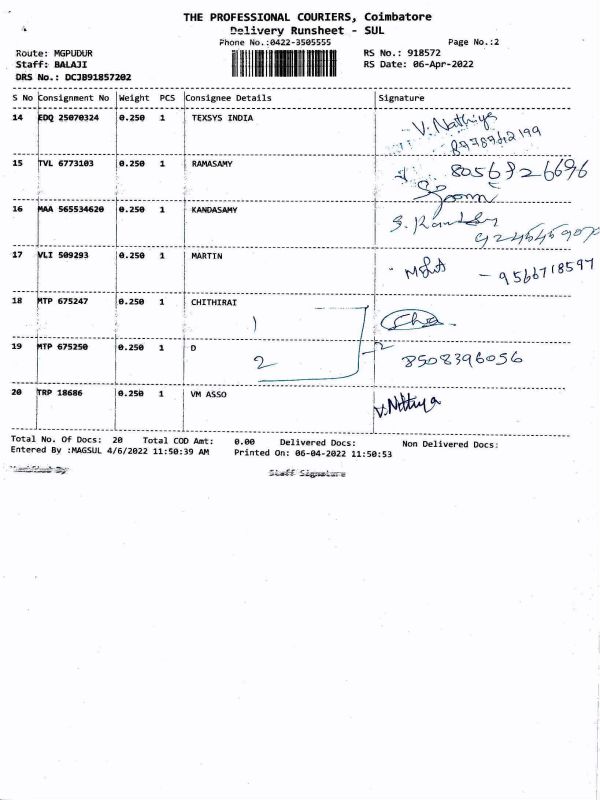 THE PROFESSIONAL COURIERS, Coimbatore
Delivery Runsheet - SUL
Phone No.:0422-3505555 Page No.:2
Route: MGPUDUR RS No.: 918572
Staff: BALAJI RS Date: 06-Apr-2022
DRS No.: DCJB91857202
S No Consignment No Weight PCS Consignee Details Signature
14 EDQ 25070324 0.250 1 TEXSYS INDIA V. Nathiya
15 TVL 6773103 0.250 1 RAMASAMY
16 MAA 565534620 0.250 1 KANDASAMY
17 VLI 509293 0.250 1 MARTIN - 9566718597
18 MTP 675247 0.250 1 CHITHIRAI
1
19 MTP 675250 0.250 1 D 2 8508396056
2
20 TRP 18686 0.250 1 VM ASSO V. Nathiya
Total No. Of Docs: 20 Total COD Amt: 0.00 Delivered Docs: Non Delivered Docs:
Entered By :MAGSUL 4/6/2022 11:50:39 AM Printed On: 06-04-2022 11:50:53
Verified By Staff Signature